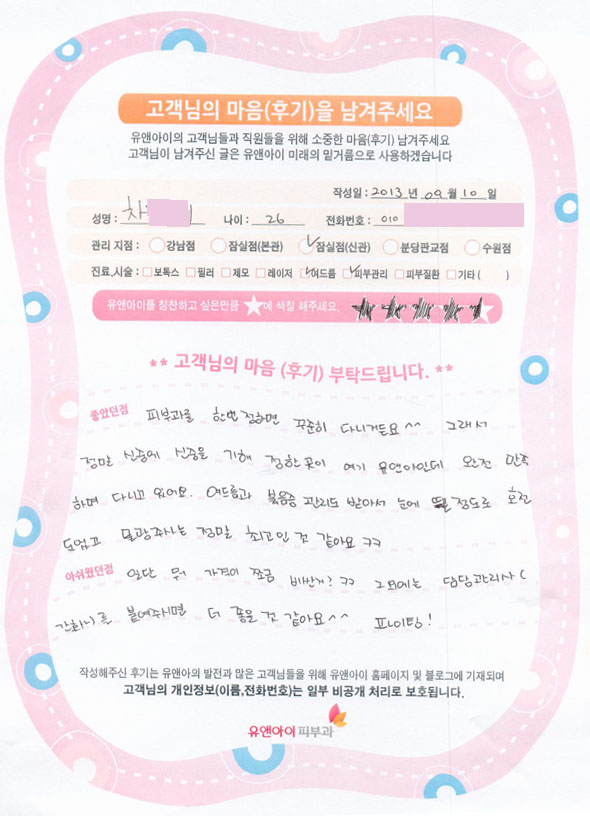 고객님의 마음(후기)을 남겨주세요
유앤아이의 고객님들과 직원들을 위해 소중한 마음(후기) 남겨주세요
고객님이 남겨주신 글은 유앤아이 미래의 밑거름으로 사용하겠습니다
작성일 : 2013 년 09 월 10 일
성명 : 차 나이 : 26 전화번호 : 010
관리 지점 : 강남점 잠실점(본관) 잠실점(신관) 분당판교점 수원점
진료,시술 : 보톡스 필러 제모 레이저 여드름 피부관리 피부질환 기타 ( )
유앤아이를 칭찬하고 싶은만큼 ★에 색칠 해주세요.
** 고객님의 마음 (후기) 부탁드립니다. **
좋았던점 피부과를 한번 정하면 꾸준히 다니거든요^^ 그래서
정말 신중에 신중을 기해 정한곳이 여기 유앤아인데 완전 만족
하며 다니고 있어요. 여드름과 복음증 관리도 받아서 눈에 띌 정도로 호전
되었고 물광주사는 정말 최고인 것 같아요 ㅋㅋ
아쉬웠던점 일단 뭐 가격이 쪼금 비싼거? ㅋㅋ 그외에는 담당관리사 (
간호사)를 붙여주시면 더 좋을 것 같아요^^ 화이팅!
작성해주신 후기는 유앤아의 발전과 많은 고객님들을 위해 유앤아이 홈페이지 및 블로그에 기재되며
고객님의 개인정보(이름,전화번호)는 일부 비공개 처리로 보호됩니다.
유앤아이 피부과